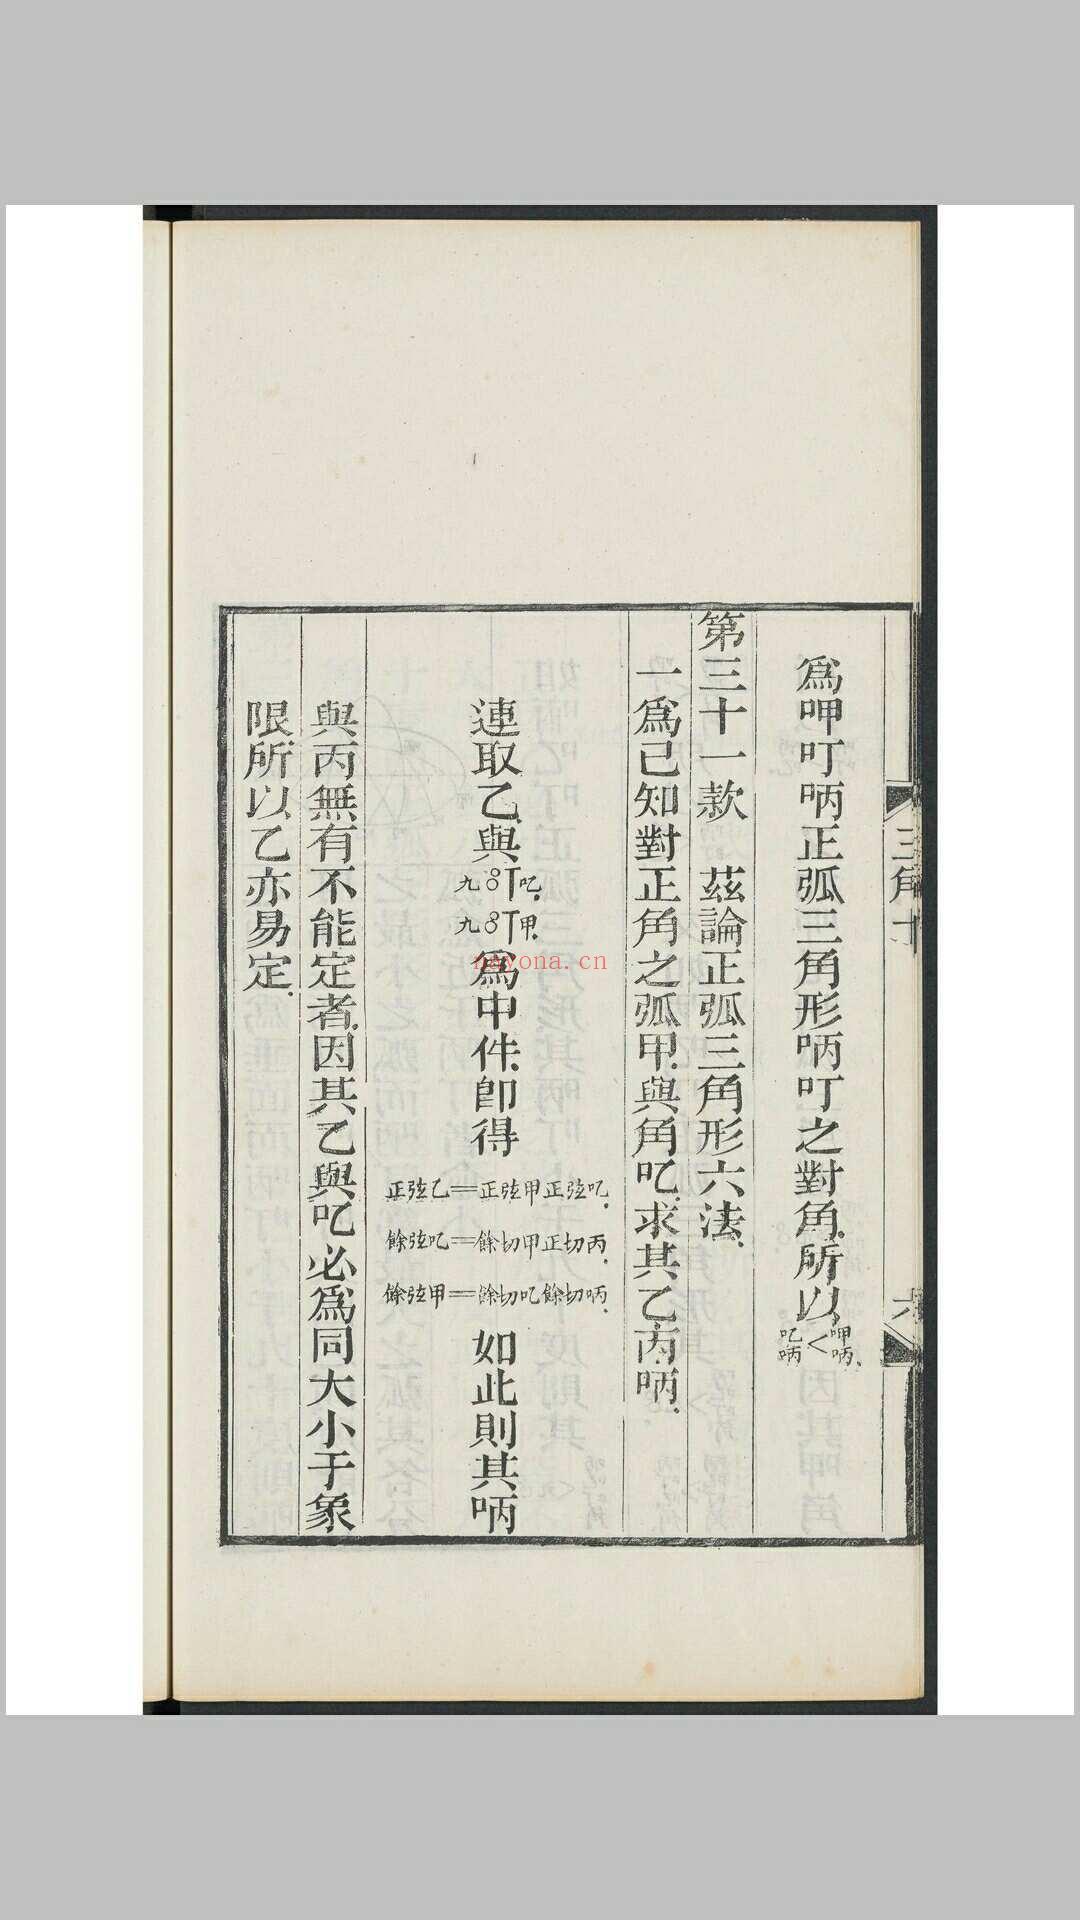 爲呷叮㖤正弧三角形㖤叮之對角所以呷㖤﹥吃㖤
第三十一款 茲論正弧三角形六法
一爲已知對正角之弧甲與角吃求其乙丙㖤
連取乙與
九〇丅吃
九〇丅甲
爲中件即得
正弦乙=正弦甲正弦吃
餘弦吃=餘切甲正切丙
餘弦甲=餘切吃餘切㖤
如此則其㖤
與丙無有不能定者因其乙與吃必爲同大小于象
限所以乙亦易定
三角十
六
nayona.cn